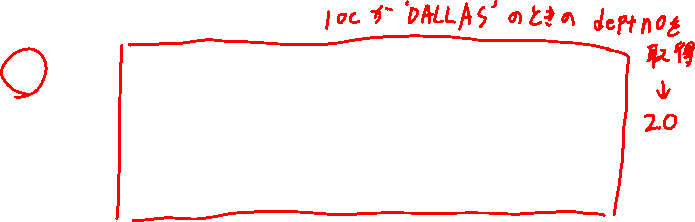 locが'DALLAS'のときのdeptnoを
取得
↓
20